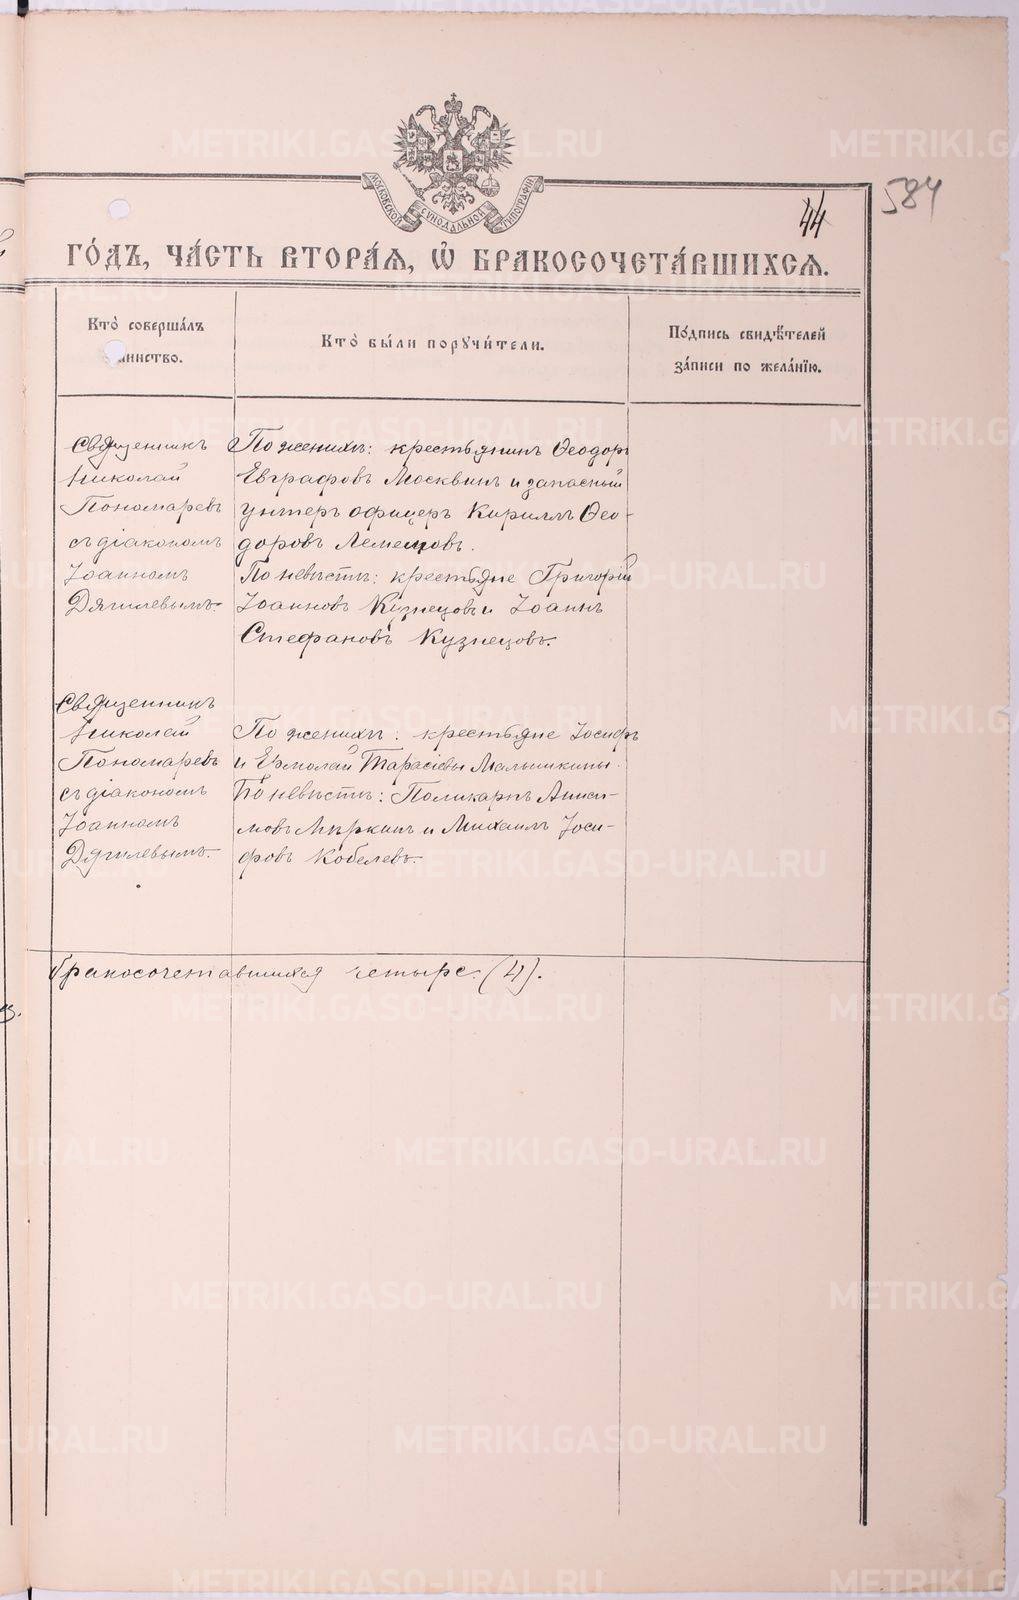 584
44
МОСКОВСКОЙ СѴНОДАЛЬНОЙ ТИПОГРАФІИ
ГО́ДЪ, ЧА́СТЬ ВТОРА́Я, Ѡ҆ БРАКОСОЧЕТА́ВШИХСЯ.
Кто̀ соверша́лъ
аинство.
Кто̀ бы́ли порꙋчи́тели.
По́дпись свидѣ́телей
за́писи по жела́нїю.
Священникъ
Николай
Пономаревъ
съ діакономъ
Іоанномъ
Дягилевымъ.
По женихѣ: крестьянинъ Ѳеодоръ
Евграфовъ Москвинъ и запасный
унтеръ офицеръ Кириллъ Ѳео-
доровъ Лемешовъ.
По невѣстѣ: крестьяне Григорій
Іоанновъ Кузнецовъ и Іоаннъ
Стефановъ Кузнецовъ.
Священникъ
Николай
Пономаревъ
съ діакономъ
Іоанномъ
Дягилевымъ.
По женихѣ: крестьяне Іосифъ
и Ермолай Тарасіевы Малышкины.
По невѣстѣ: Поликарпъ Аниси-
мовъ Мыркинъ и Михаилъ Іоси-
фовъ Кобелевъ.
бракосочетавшихся четыре (4).
METRIKI.GASO-URAL.RU